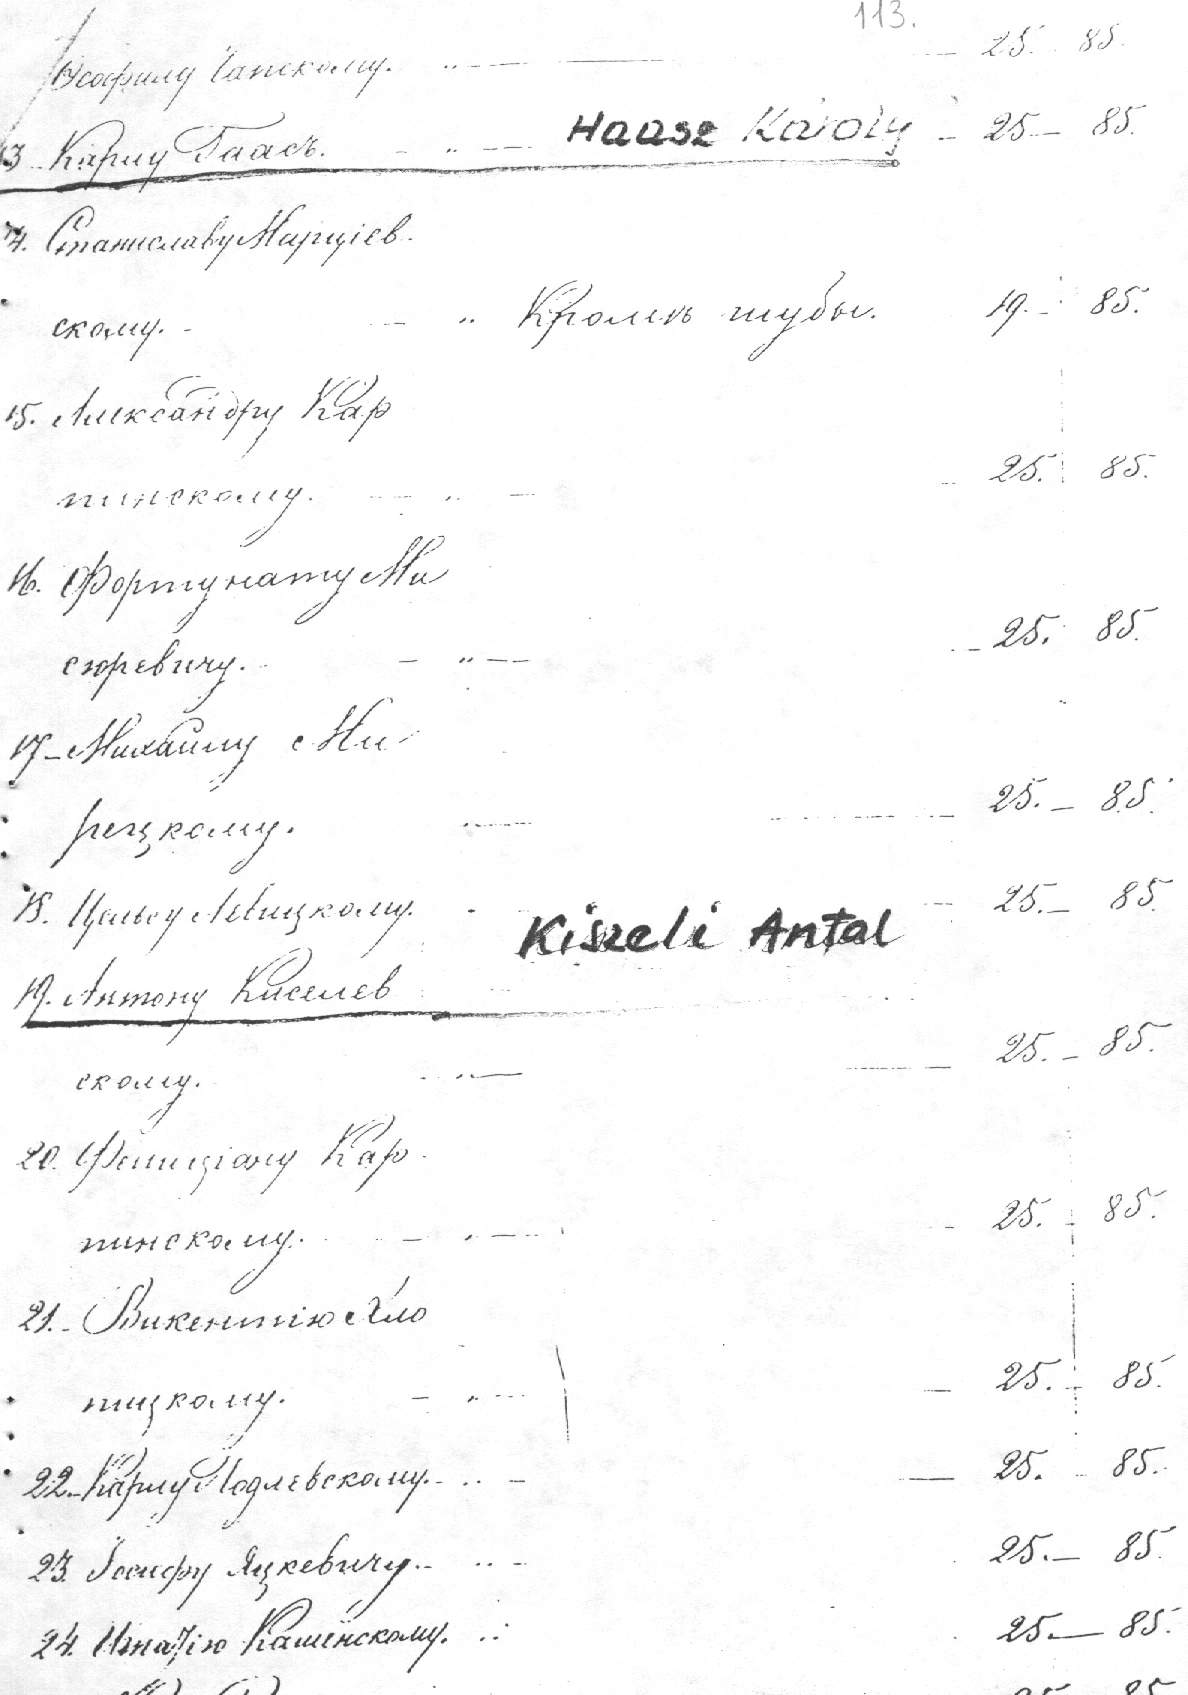 113.
Ѳеофилу Чапскому. " — 25. 85.
13 Карлу Гаасъ. — " — Haase Károly — 25 — 85.
14. Станиславу Марціев-
скому. - — " Кромѣ шубы. 19. - 85.
15. Александру Кар
пинскому. — " — 25. 85.
16. Фортунату Ми
сюревичу. — " — 25. 85.
17 - Михаилу Ми-
рецкому. " — 25. — 85.
18. Цельсу Левицкому. - — 25. — 85.
Kiszeli Antal
19. Антону Киселев
скому. - " — 25. — 85.
20. Фелиціану Кар-
пинскому. — " — 25. - 85.
21. - Викентію Хло
пицкому. — " — 25. - 85.
22. - Карлу Подлевскому. - " - 25. - 85.
23. Іосифу Яцкевичу. - " - 25. — 85.
24. Игнатію Каминскому. " 25. — 85.
25 85